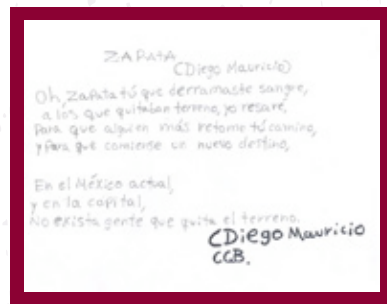 ZAPATA
(Diego Mauricio)
Oh, Zapata tú que derramaste sangre,
a los que quitaban terreno, yo resaré,
Para que alguien más retome tú camino,
y Para que comiense un nuevo destino,
En el México actual,
y en la capital,
No exista gente que quita el terreno.
(Diego Mauricio
CCB.